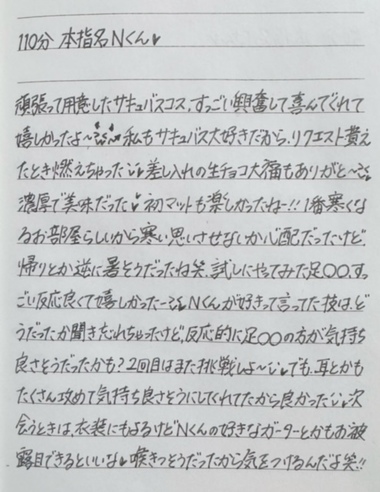 110分 本指名Nくん♥
頑張って用意したサキュバスコス、すっごい興奮して喜んでくれて
嬉しかったよ〜 私もサキュバス大好きだから、リクエスト貰え
たとき燃えちゃった 差し入れの生チョコ大福もありがと〜
濃厚で美味だった♥初マットも楽しかったね〜!!1番寒くな
るお部屋らしいから寒い思いさせないか心配だったけど、
帰りとか逆に暑そうだったね笑、試しにやってみた足〇〇、すっ
ごい反応良くて嬉しかったー Nくんが好きって言ってた技は、ど
うだったか聞きそびれちゃったけど、反応的に足〇〇の方が気持ち
良さそうだったかも?2回目はまた挑戦しよ〜 でも、耳とかも
たくさん攻めて気持ち良さそうにしてくれてたから良かった 次
会うときは、衣装にもよるけどNくんの好きなガーターとかもお披
露目できるといいな♥喉きつそうだったから気をつけるんだよ笑!!